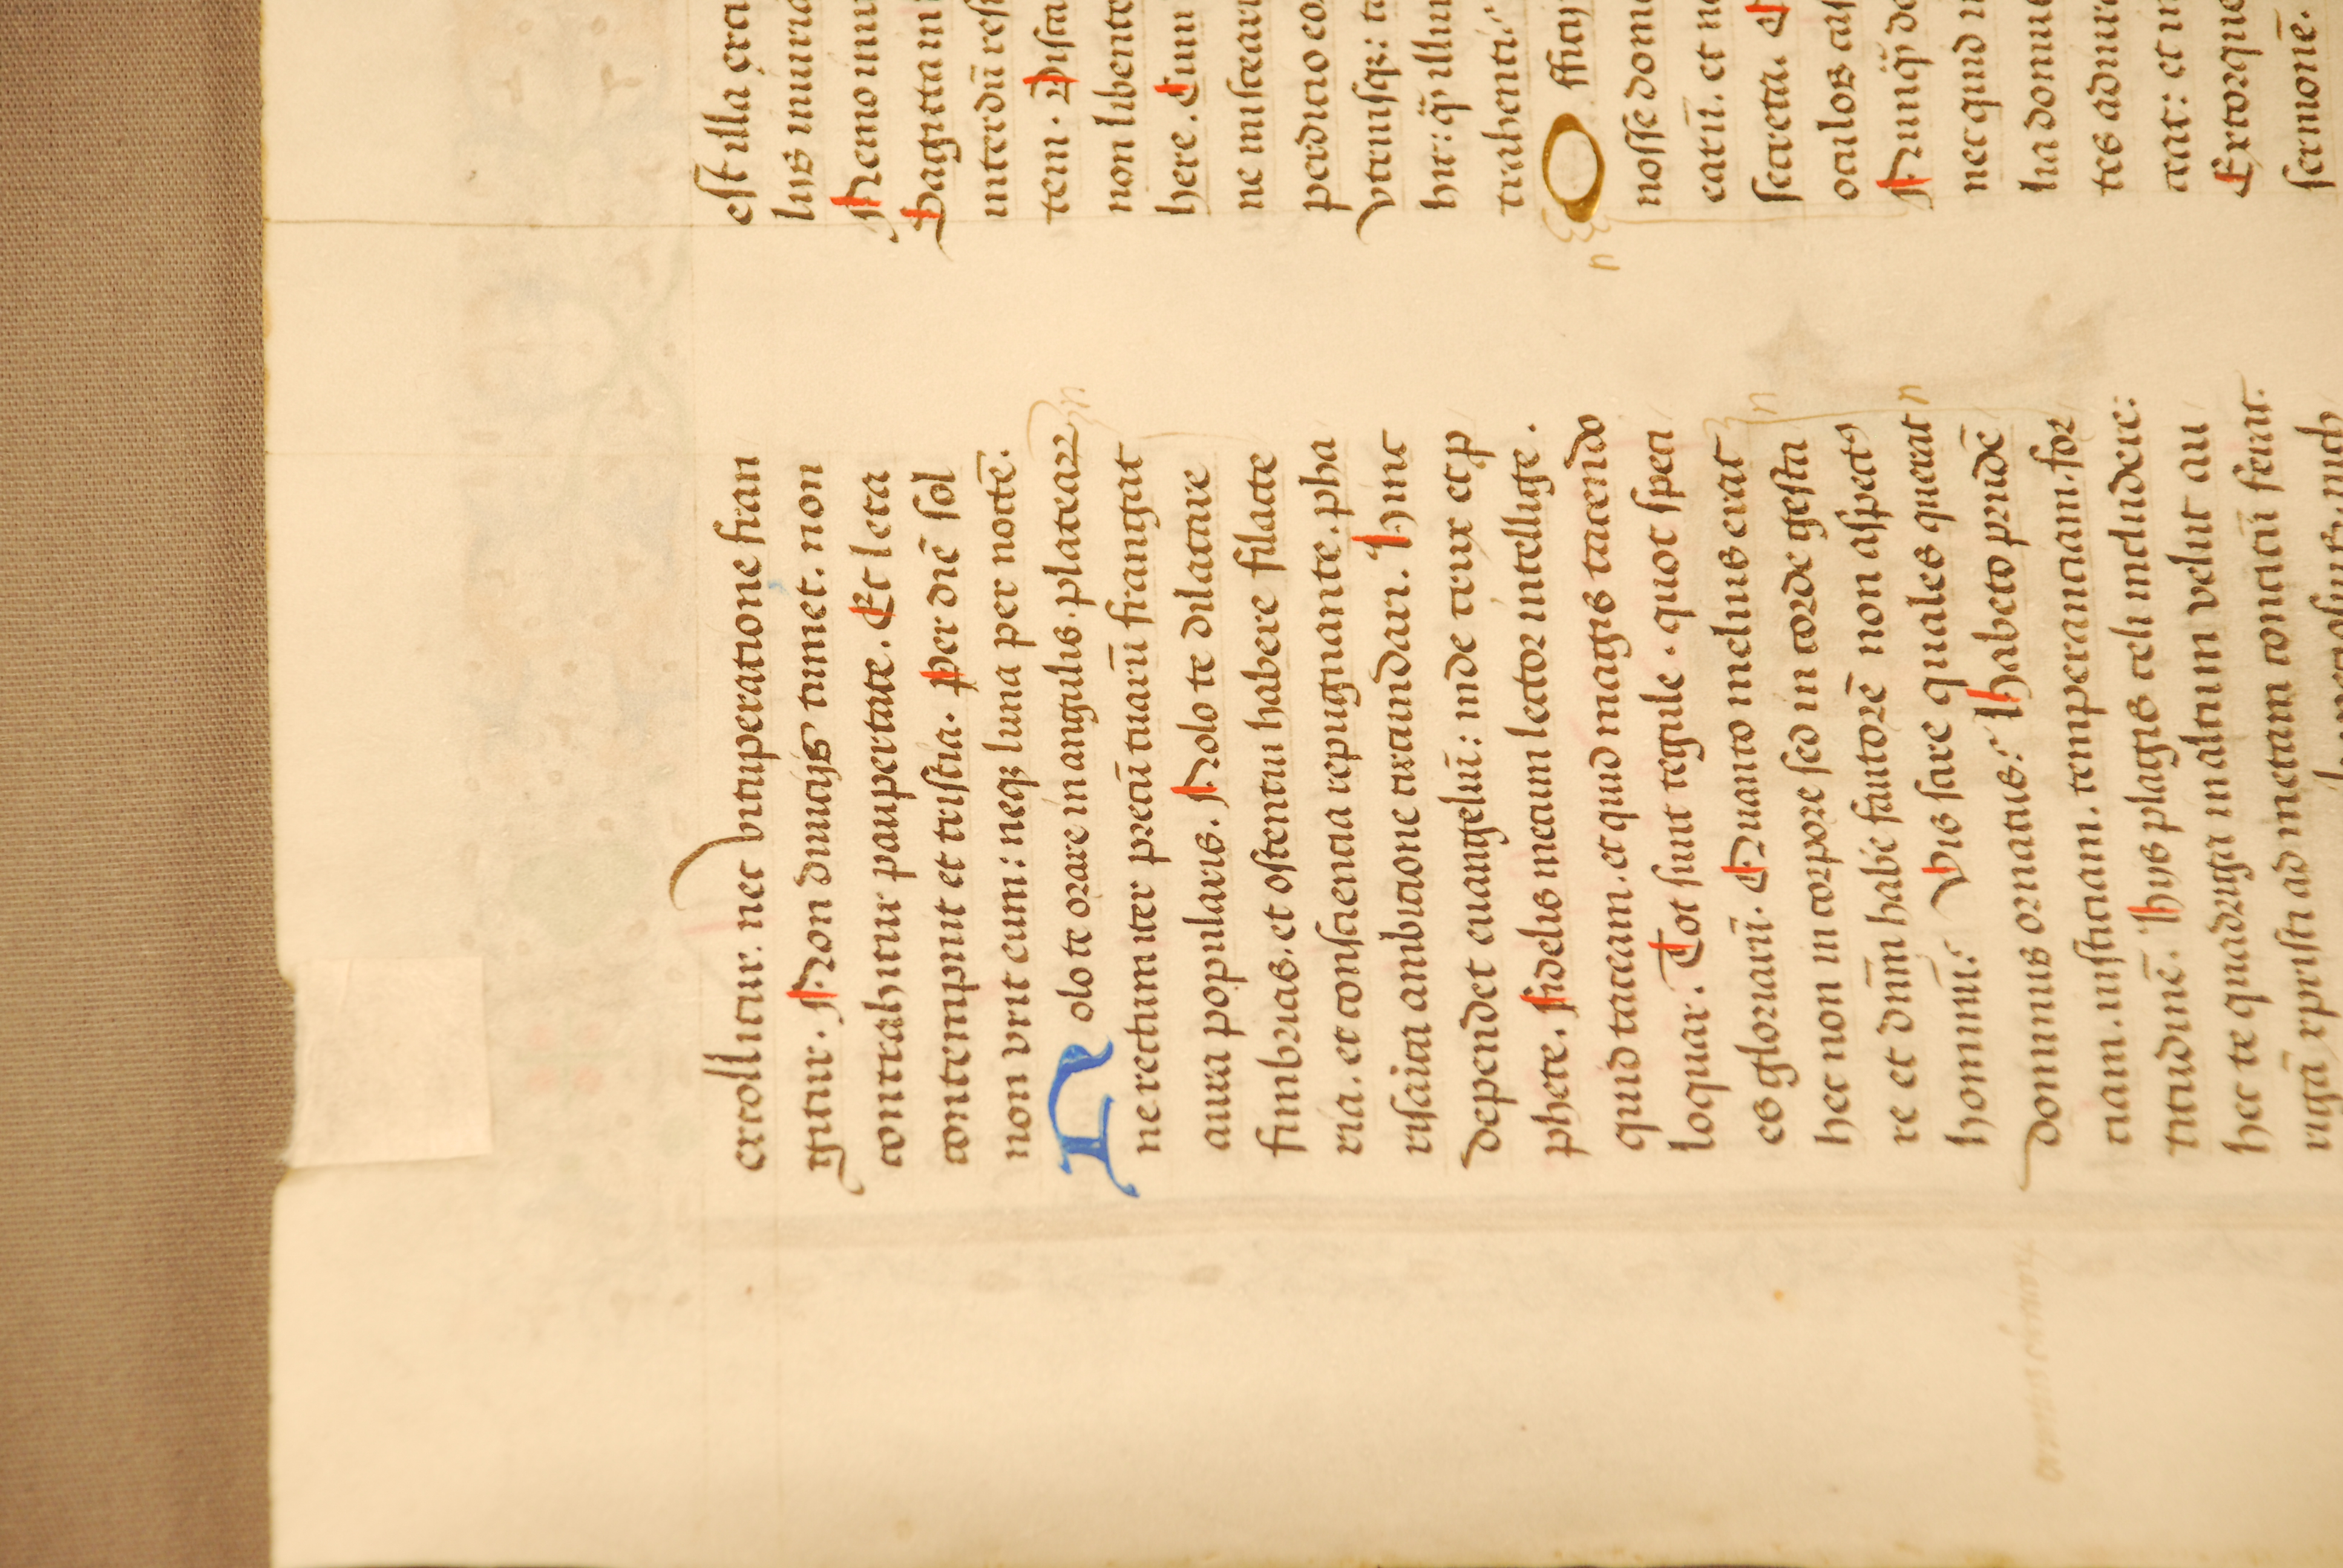 extollitur. nec vituperatione fran
gitur. Non diuicijs tumet. non
contrahitur paupertate. Et leta
contempnit et tristia. Per diē sol
non vrit eum: neqꝫ luna per noctē.
Nolo te orare in angulis. plateaꝝ
ne rectum iter precū tuarū frangat
aura popularis. Nolo te dilatare
fimbrias. et ostentui habere filacte
ria. et consciencia repugnante. pha
risaica ambicione circundari. Hinc
dependet euangeliū: inde crux et ꝓ
phete. Fidelis mecum lector intellige.
quid taceam. et quid magis tacendo
loquar. Tot sunt regule. quot speci
es gloriarū. Quanto melius erat
hec non in corpore sed in corde gesta
re et dn̄m habē fautorē non aspectꝰ
hominū? Vis scire quales querat
dominus ornatus? Habeto prudē
ciam. iusticiam. temperanciam. for
titudinē. Hijs plagis celi includere:
hec te quadriga in altum velut au
rigā xp̄isti ad metam concitū ferat.
est illa
lus iniuria
Nemo
Sagitta
interdū
tem. Disca
non libente
here. Cum
ne misceari
perdicio eo
vtriusqꝫ:
illum
trahenti
Offici
nosse dom
earū. et
secreta.
oculos
nec quid
lia
tes
et
Extorque
sermonē.